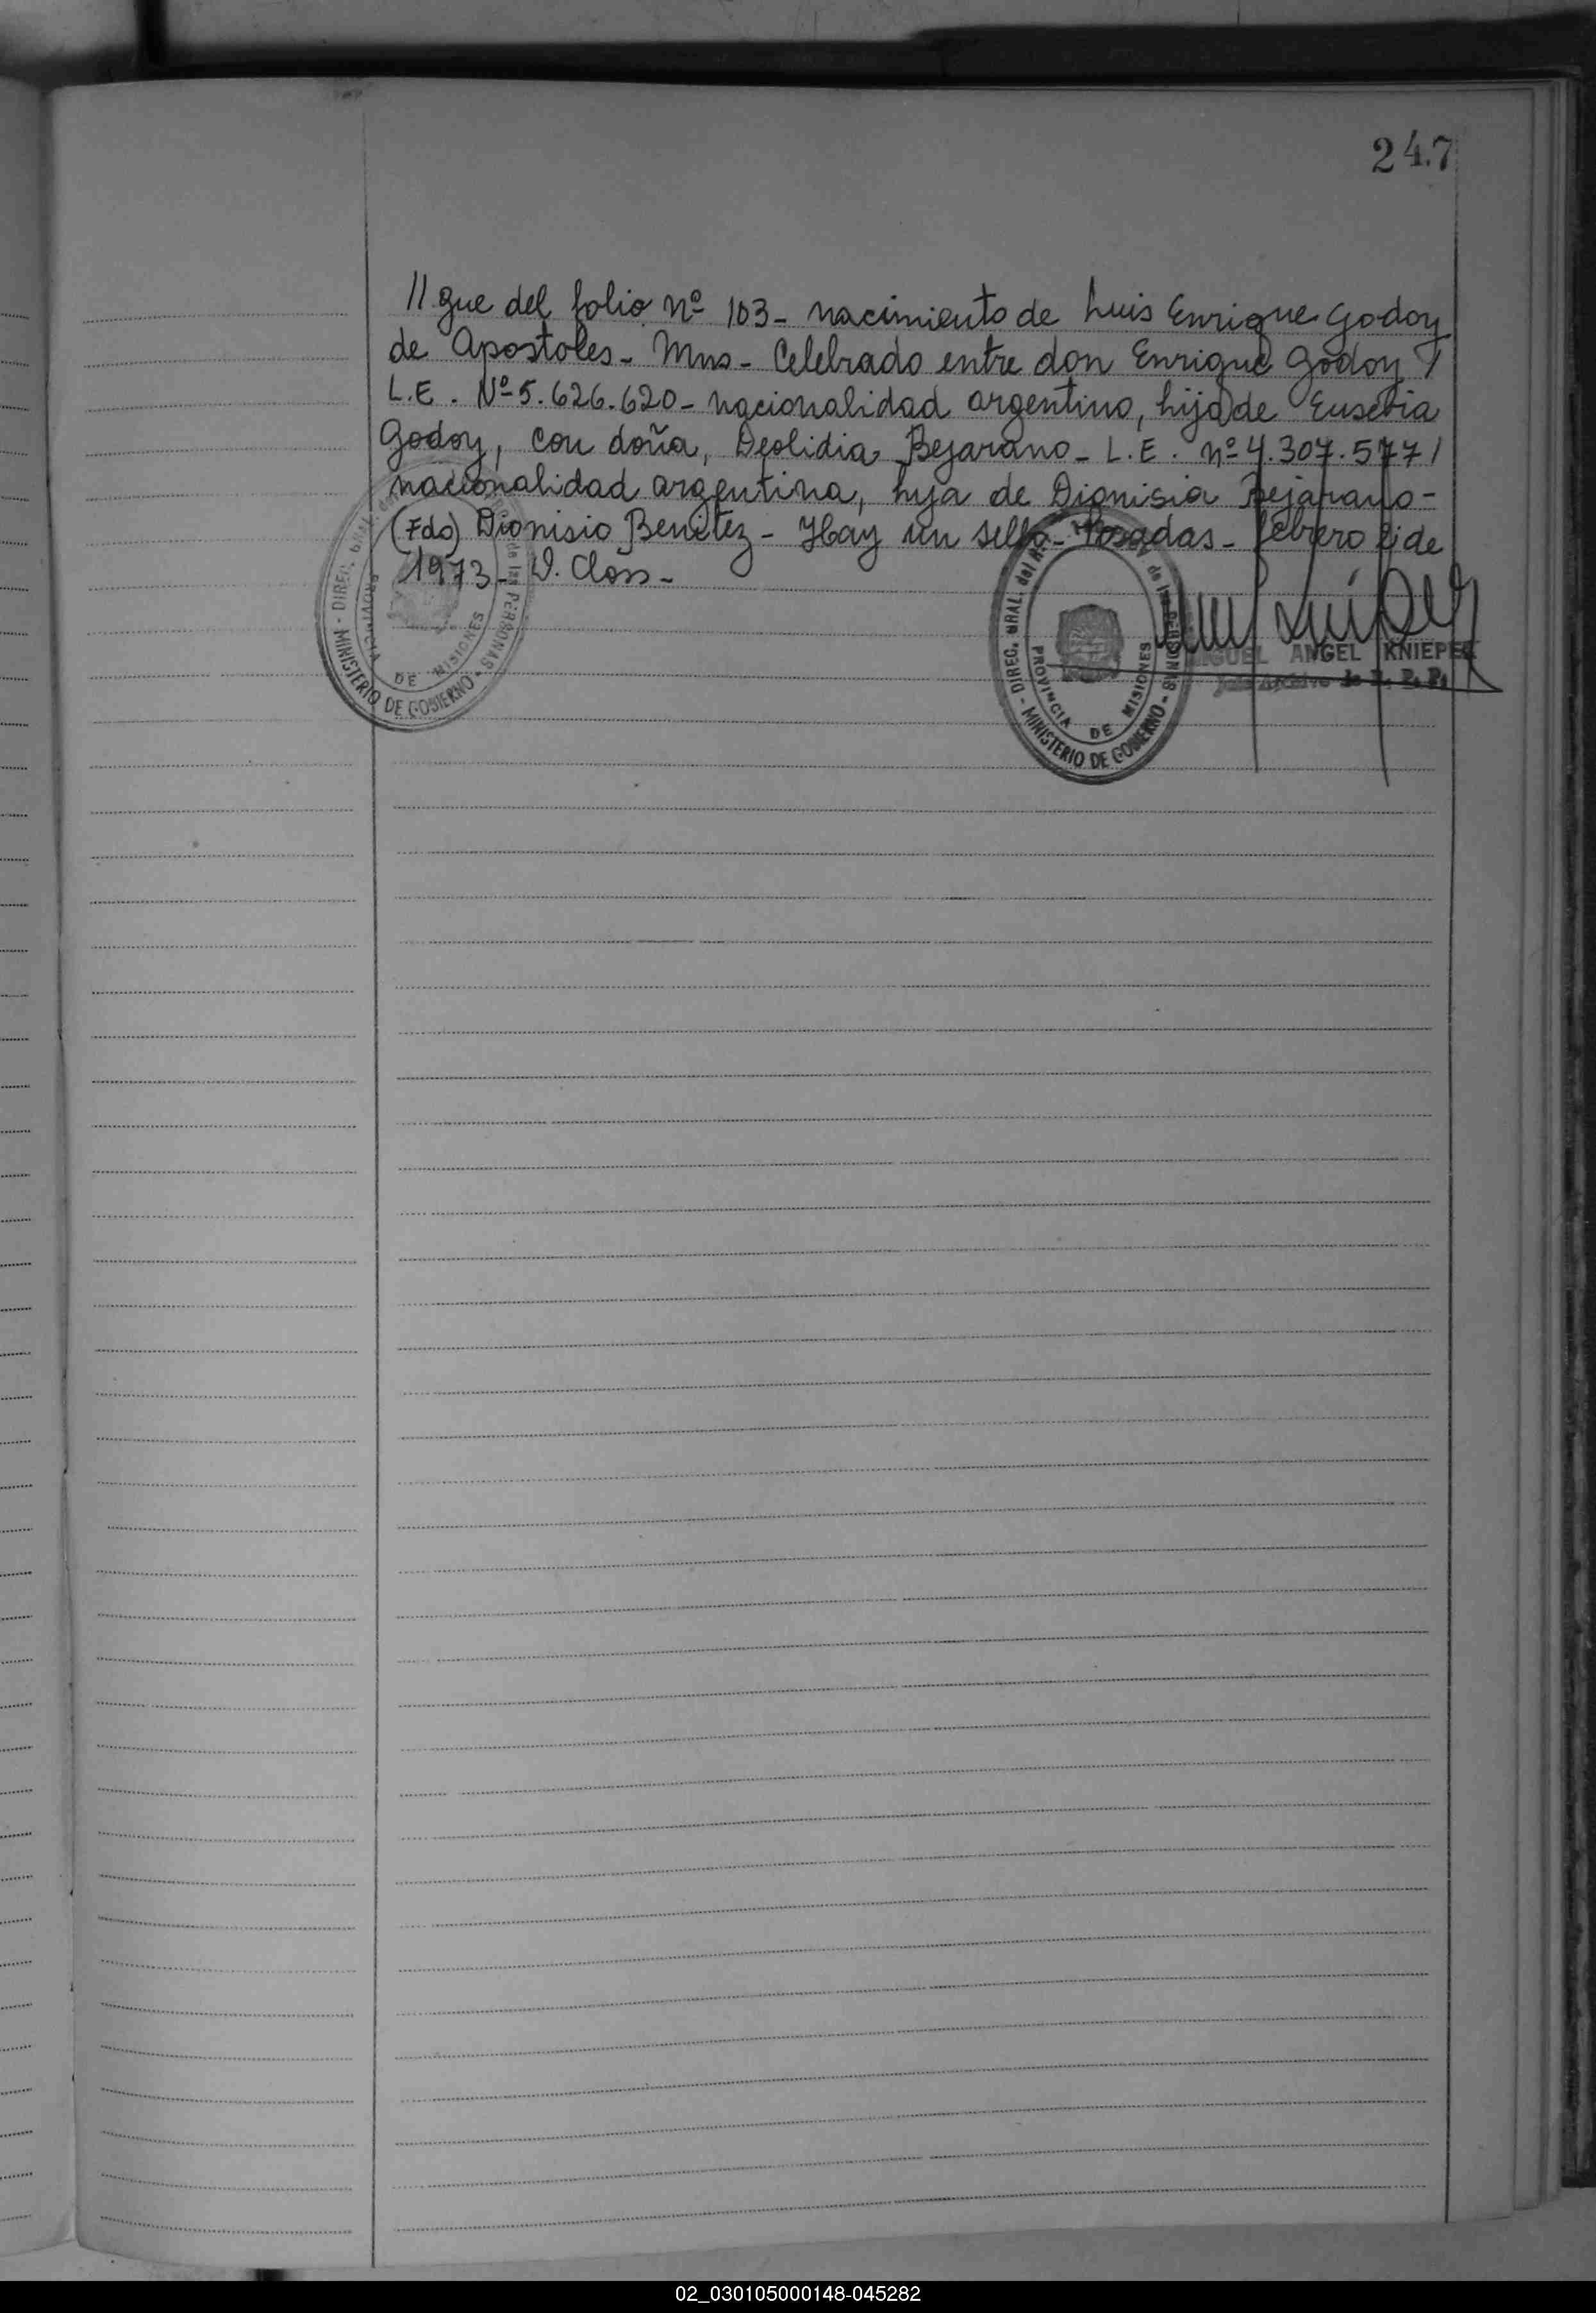 247
// gue del folio Nº 103 - nacimiento de Luis Enrique Godoy
de Apostoles - Mns - Celebrado entre don Enrique Godoy /
L.E. Nº 5.626.620 - nacionalidad argentino, hijo de Eusebia
Godoy, con doña, Deolidia Bejarano - L.E. Nº 4.307.577 /
nacionalidad argentina, hija de Dionisia Bejarano -
(Fdo) Dionisio Benitez - Hay un sello - Posadas - febrero de
1973 - D. Closs -
DIREC. GRAL. de las PERSONAS - MINISTERIO DE GOBIERNO - PROVINCIA DE MISIONES
DIREC. GRAL. del de las PERSONAS - MINISTERIO DE GOBIERNO - PROVINCIA DE MISIONES
MIGUEL ANGEL KNIEPER
Jefe Archivo de R. P. P.
02_030105000148-045282